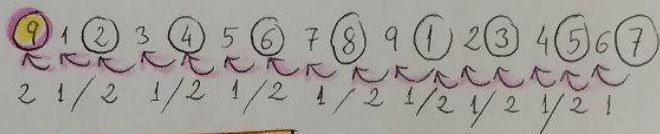 9 1 2 3 4 5 6 7 8 9 1 2 3 4 5 6 7
2 1/2 1/2 1/2 1/2 1/2 1/2 1/2 1